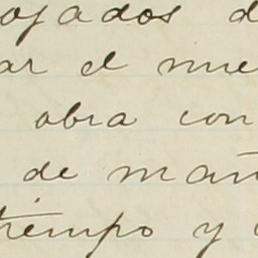 ojados d
ar el nue
obra con
de mañ
tiempo y